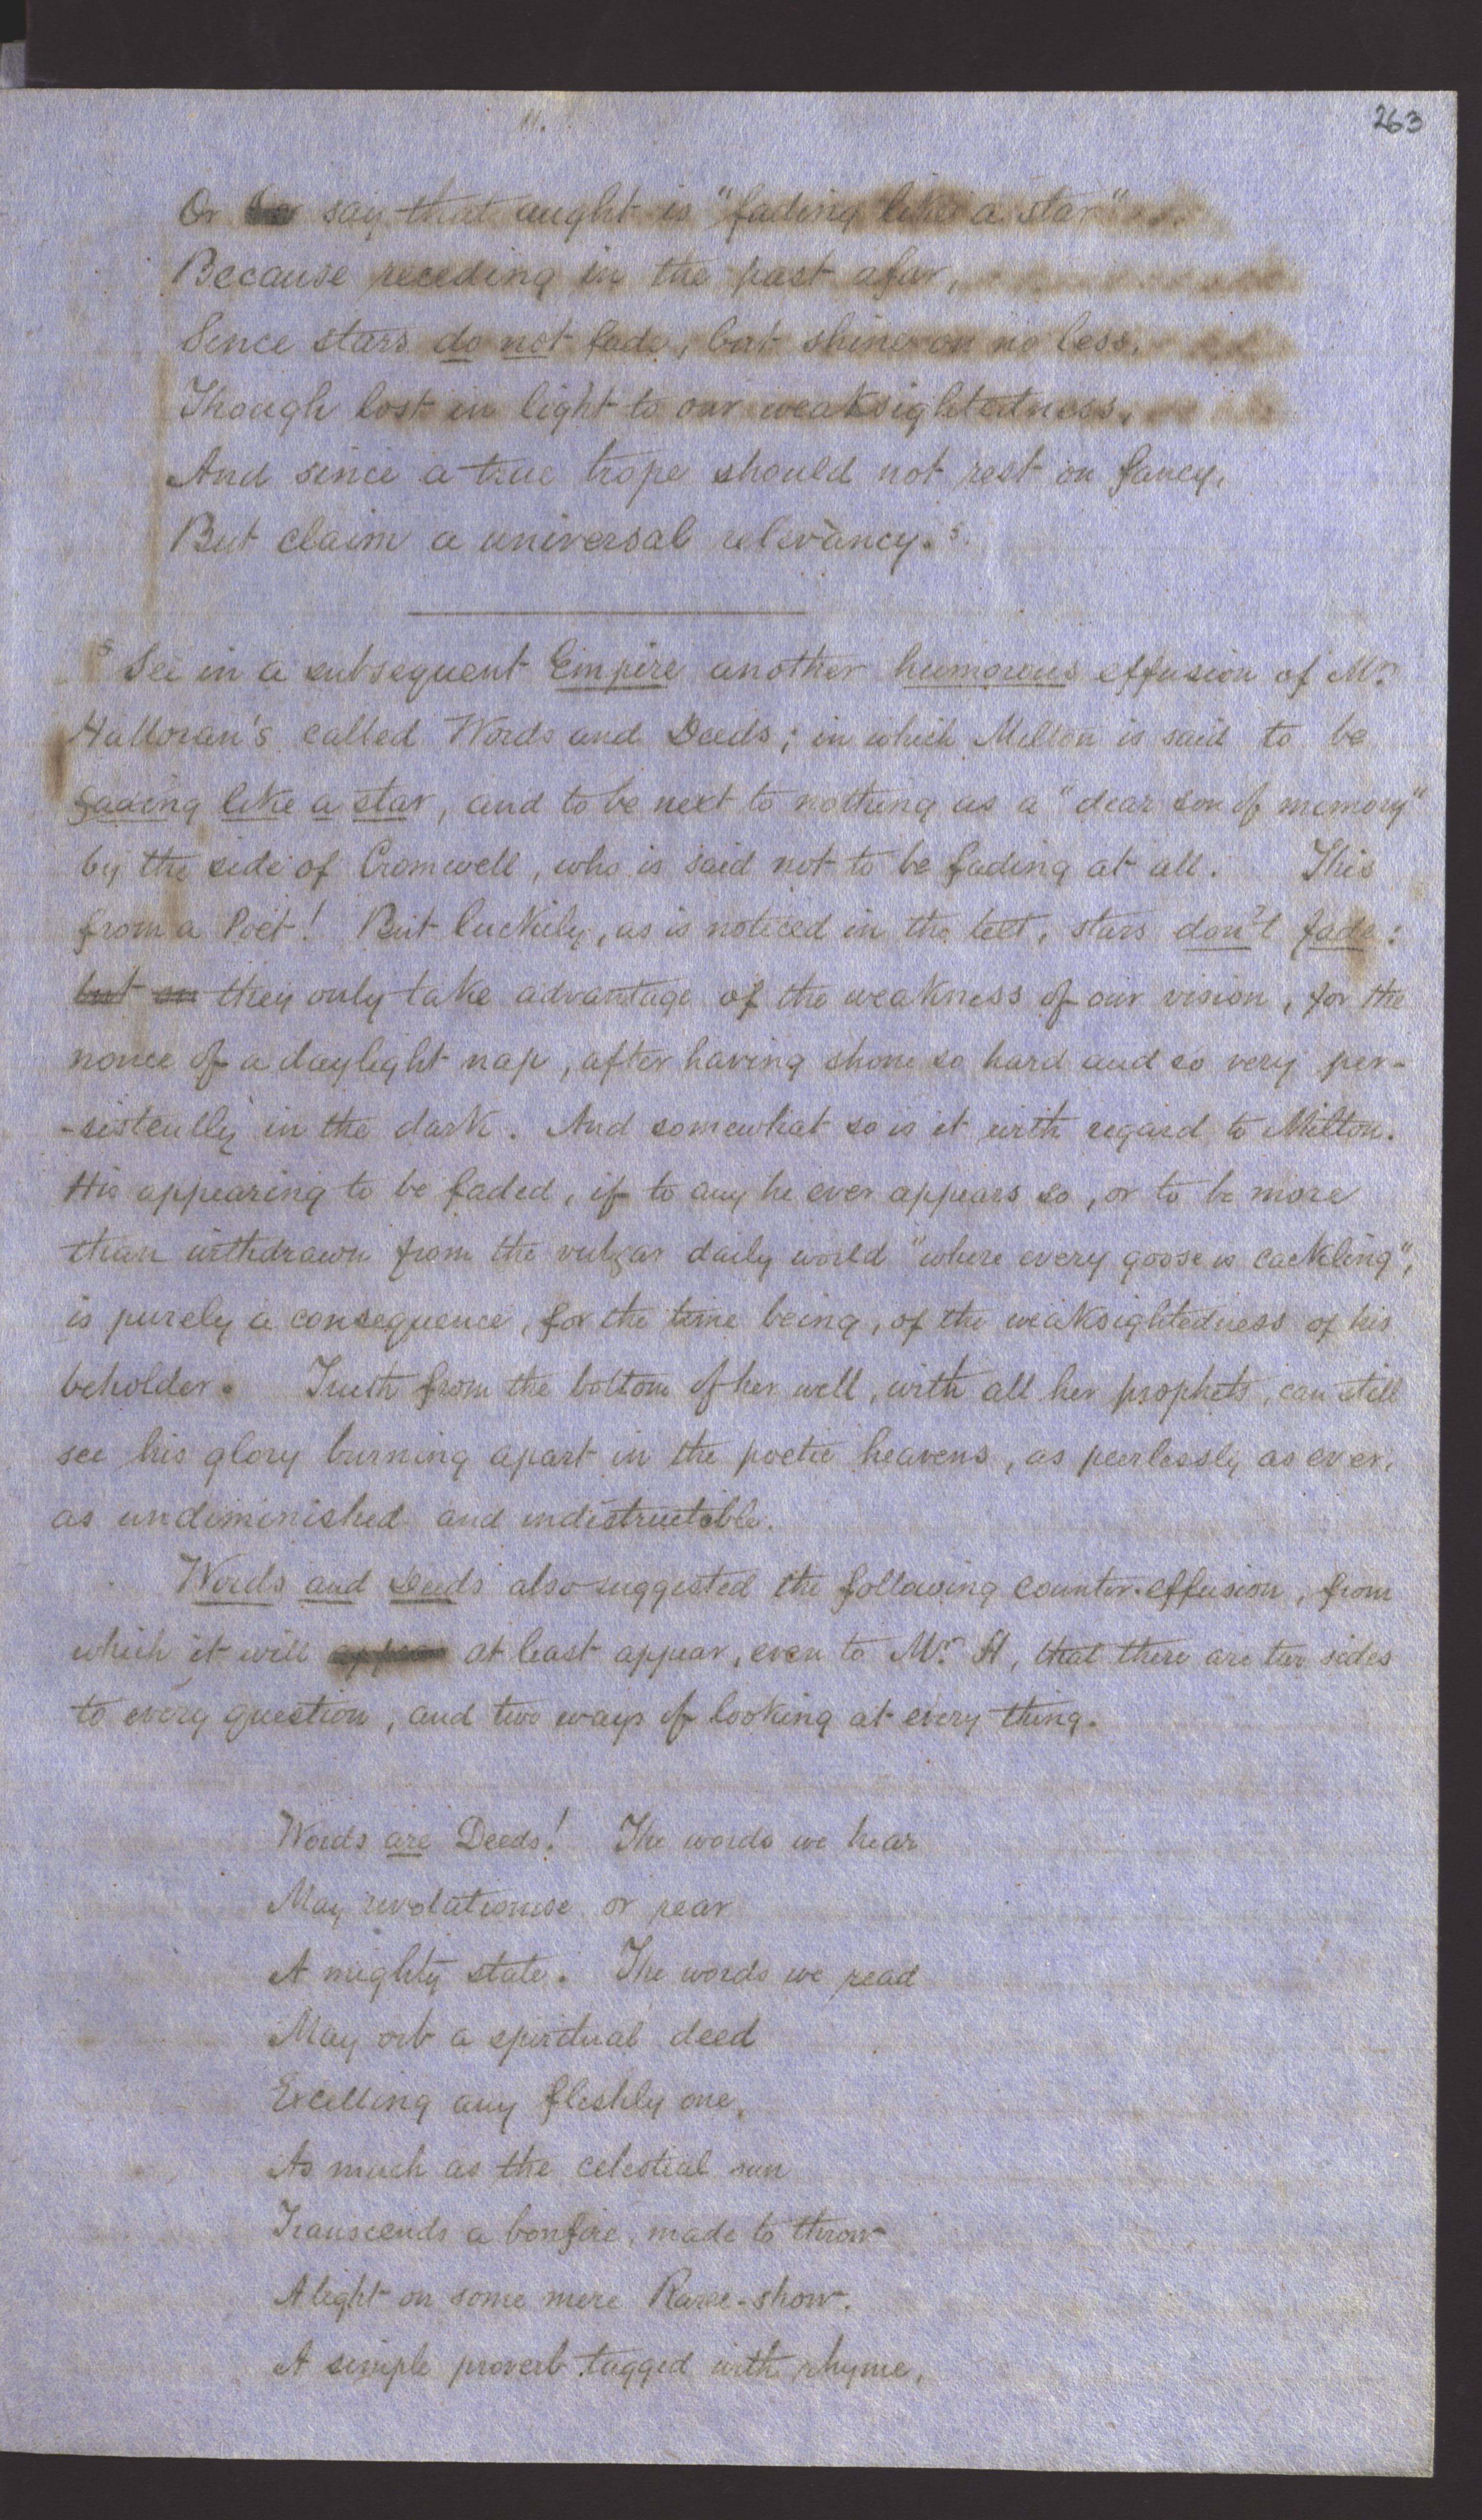 11.
263
Or say that aught is "fading like a star"
Because receding in the past afar,
Since stars do not fade, but shine on no less,
Though lost in light to our weaksightedness,
And since a true trope should not rest on fancy,
But claim a universal relevancy. 5.
5 See in a subsequent Empire another humorous effusion of Mr.
Halloran's called Words and Deeds; in which Milton is said to be
fading like a star, and to be next to nothing as a "dear son of memory"
by the side of Cromwell, who is said not to be fading at all. This
from a Poet! But luckily, as is noticed in the text, stars don't fade:
but they only take advantage of the weakness of our vision, for the
nonce of a daylight nap, after having shone so hard and so very per-
-sistently in the dark. And somewhat so is it with regard to Milton.
His appearing to be faded, if to any he ever appears so, or to be more
than withdrawn from the vulgar daily world "where every goose is cackling",
is purely a consequence, for the time being, of the weaksightedness of his
beholder. Truth from the bottom of her well, with all her prophets, can still
see his glory burning apart in the poetic heavens, as peerlessly as ever,
as undiminished and indestructible.
Words and Deeds also suggested the following counter-effusion, from
which it will appear at least appear, even to Mr. H, that there are two sides
to every question, and two ways of looking at every thing.
Words are Deeds! The words we hear
May revolutionise or rear
A mighty state. The words we read
May orb a spiritual deed
Excelling any fleshly one,
As much as the celestial sun
Transcends a bonfire, made to throw
A light on some mere Raree-show.
A simple proverb tagged with rhyme,